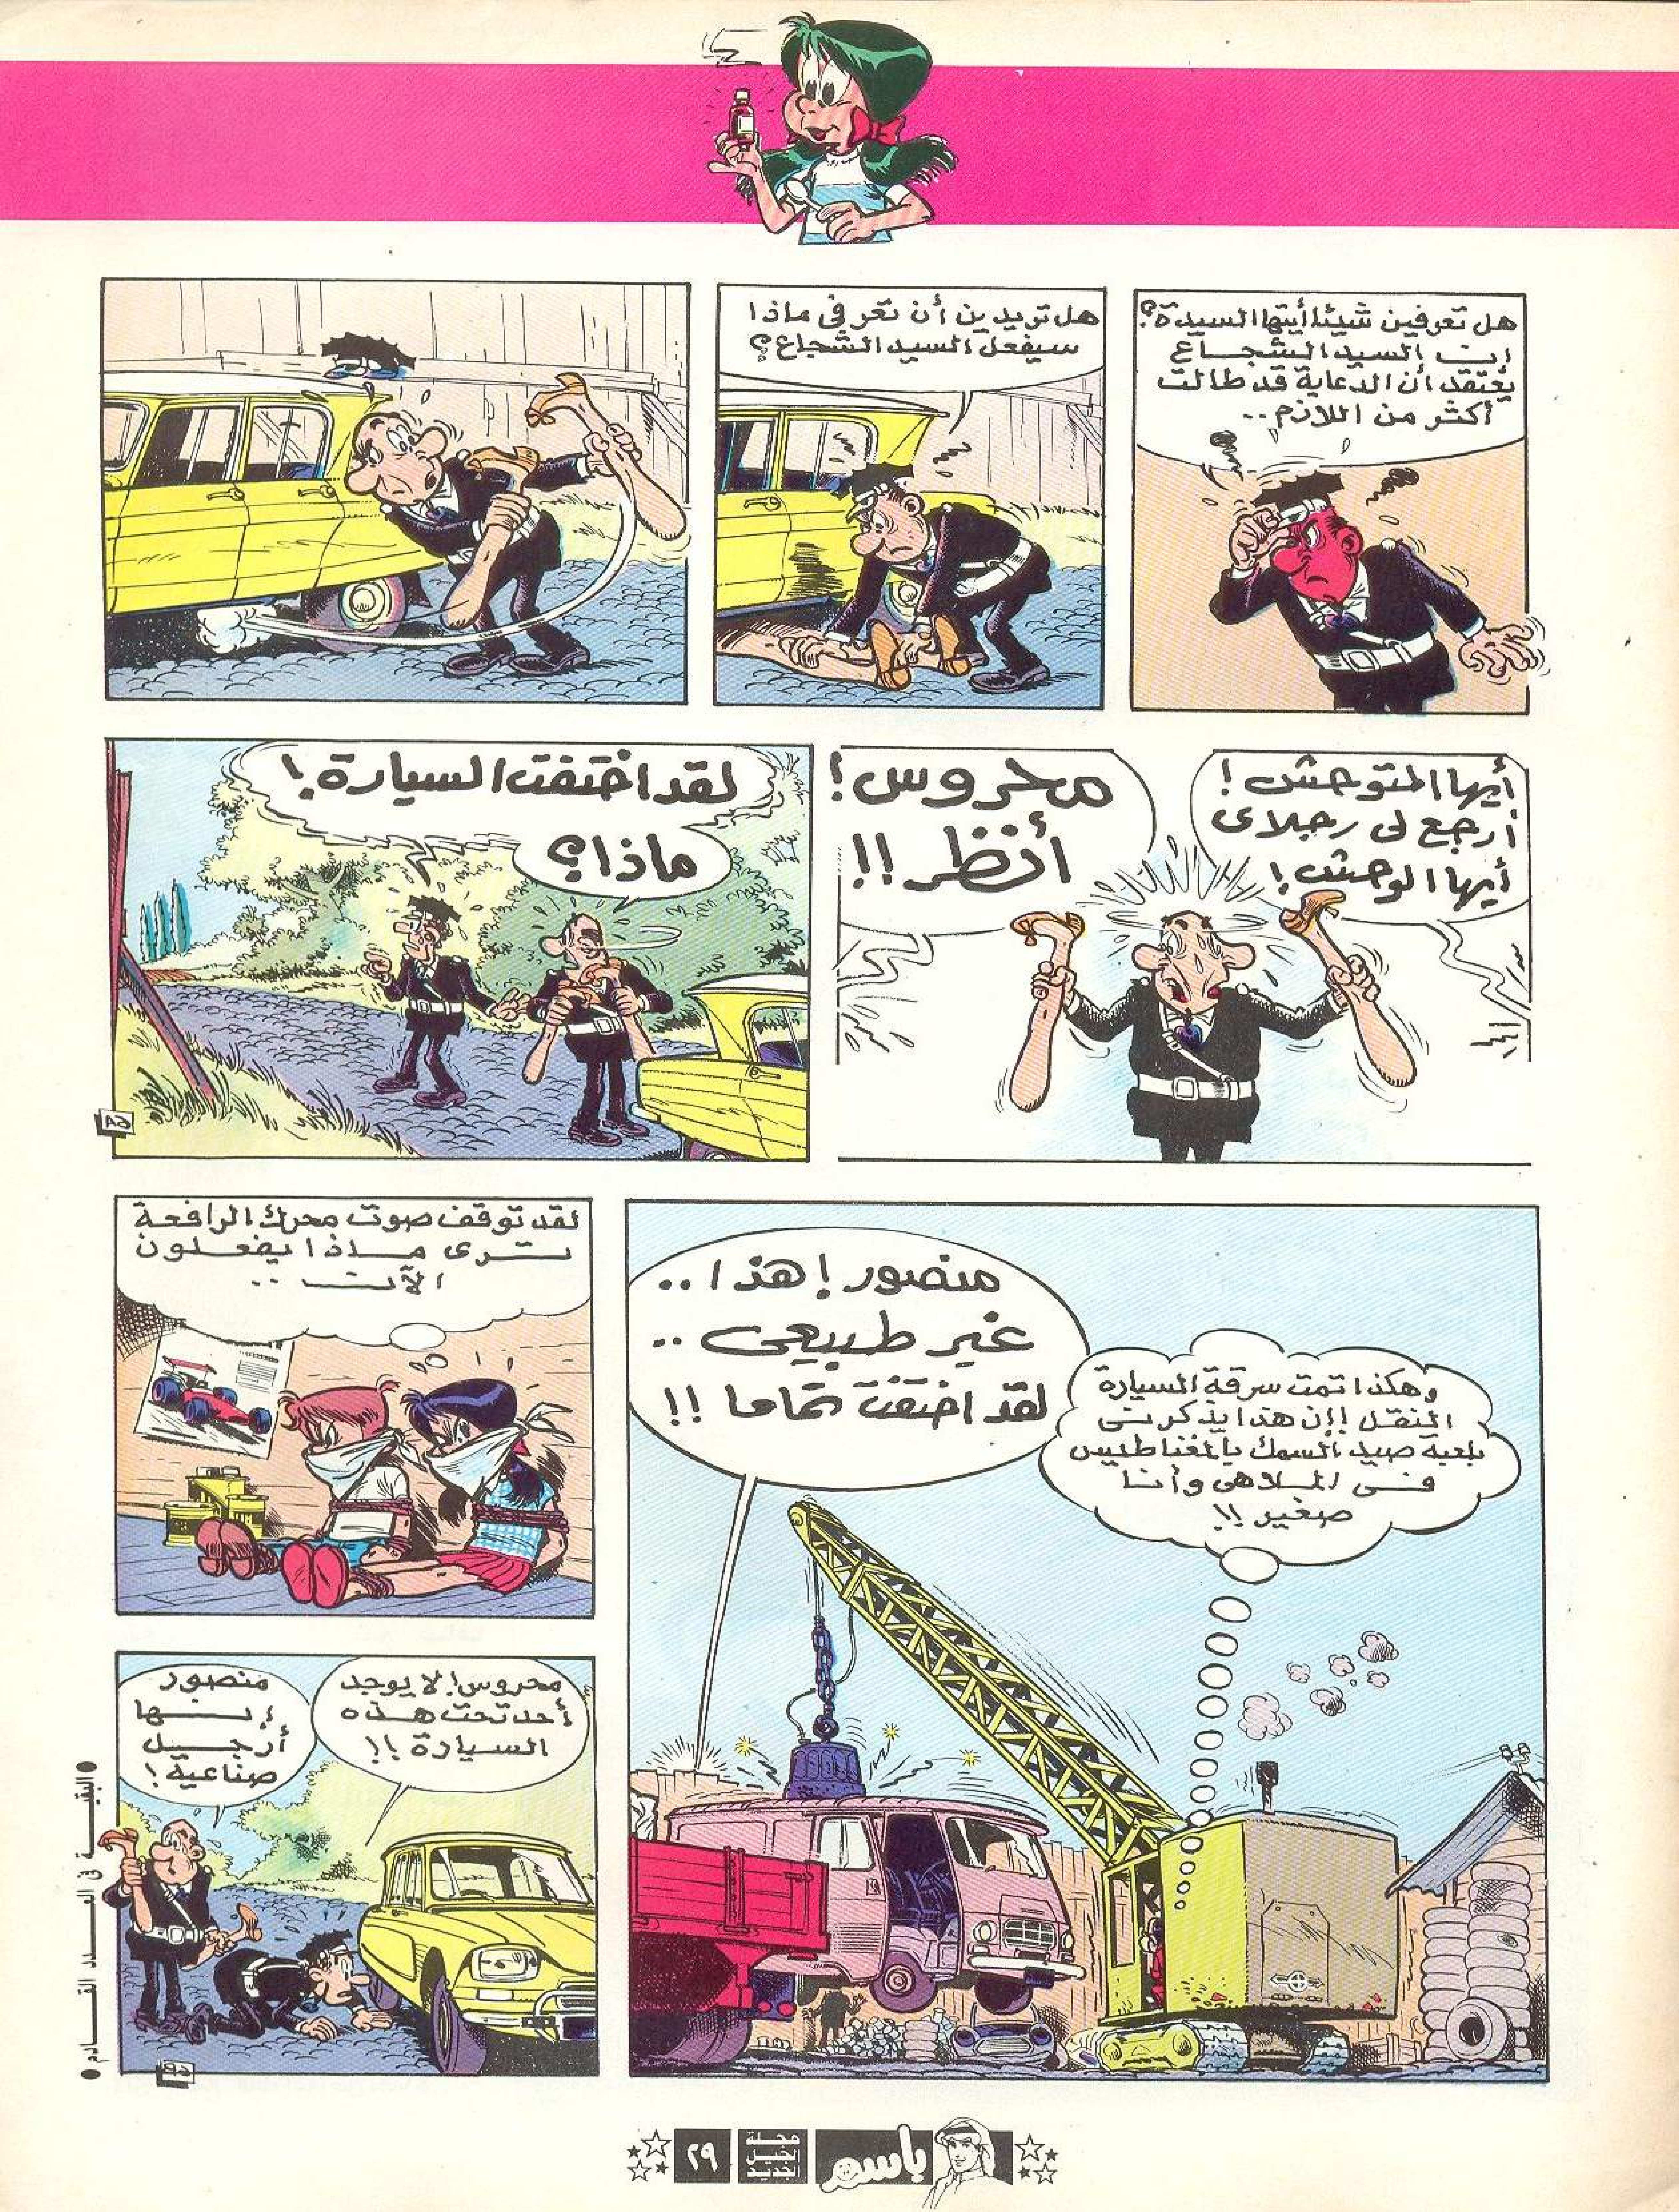 هل تعرفين شيئا أيتها السيدة؟
إن السيد الشجاع
يعتقد أن الدعابة قد طالت
أكثر من اللازم..
هل تريدين أن تعرفي ماذا
سيفعل السيد الشجاع؟
أيها المتوحش!
أرجع لى رجلاى
أيها الوحش!
محروس!
أنظر!!
لقد اختفت السيارة!
ماذا؟
6A
منصور! هذا..
غير طبيعى..
لقد اختفت تماما!!
وهكذا تمت سرقة السيارة
النقل! إن هذا يذكرنى
بلعبة صيد السمك بالمغناطيس
فى الملاهى وأنا
صغير!!
لقد توقف صوت محرك الرافعة
ترى ماذا يفعلون
الآن..
محروس! لا يوجد
أحد تحت هذه
السيارة!!
منصور
إنها
أرجل
صناعية!
6B
● البقية فى العدد القادم ●
باسم
مجلة
الجيل
الجديد
٢٩